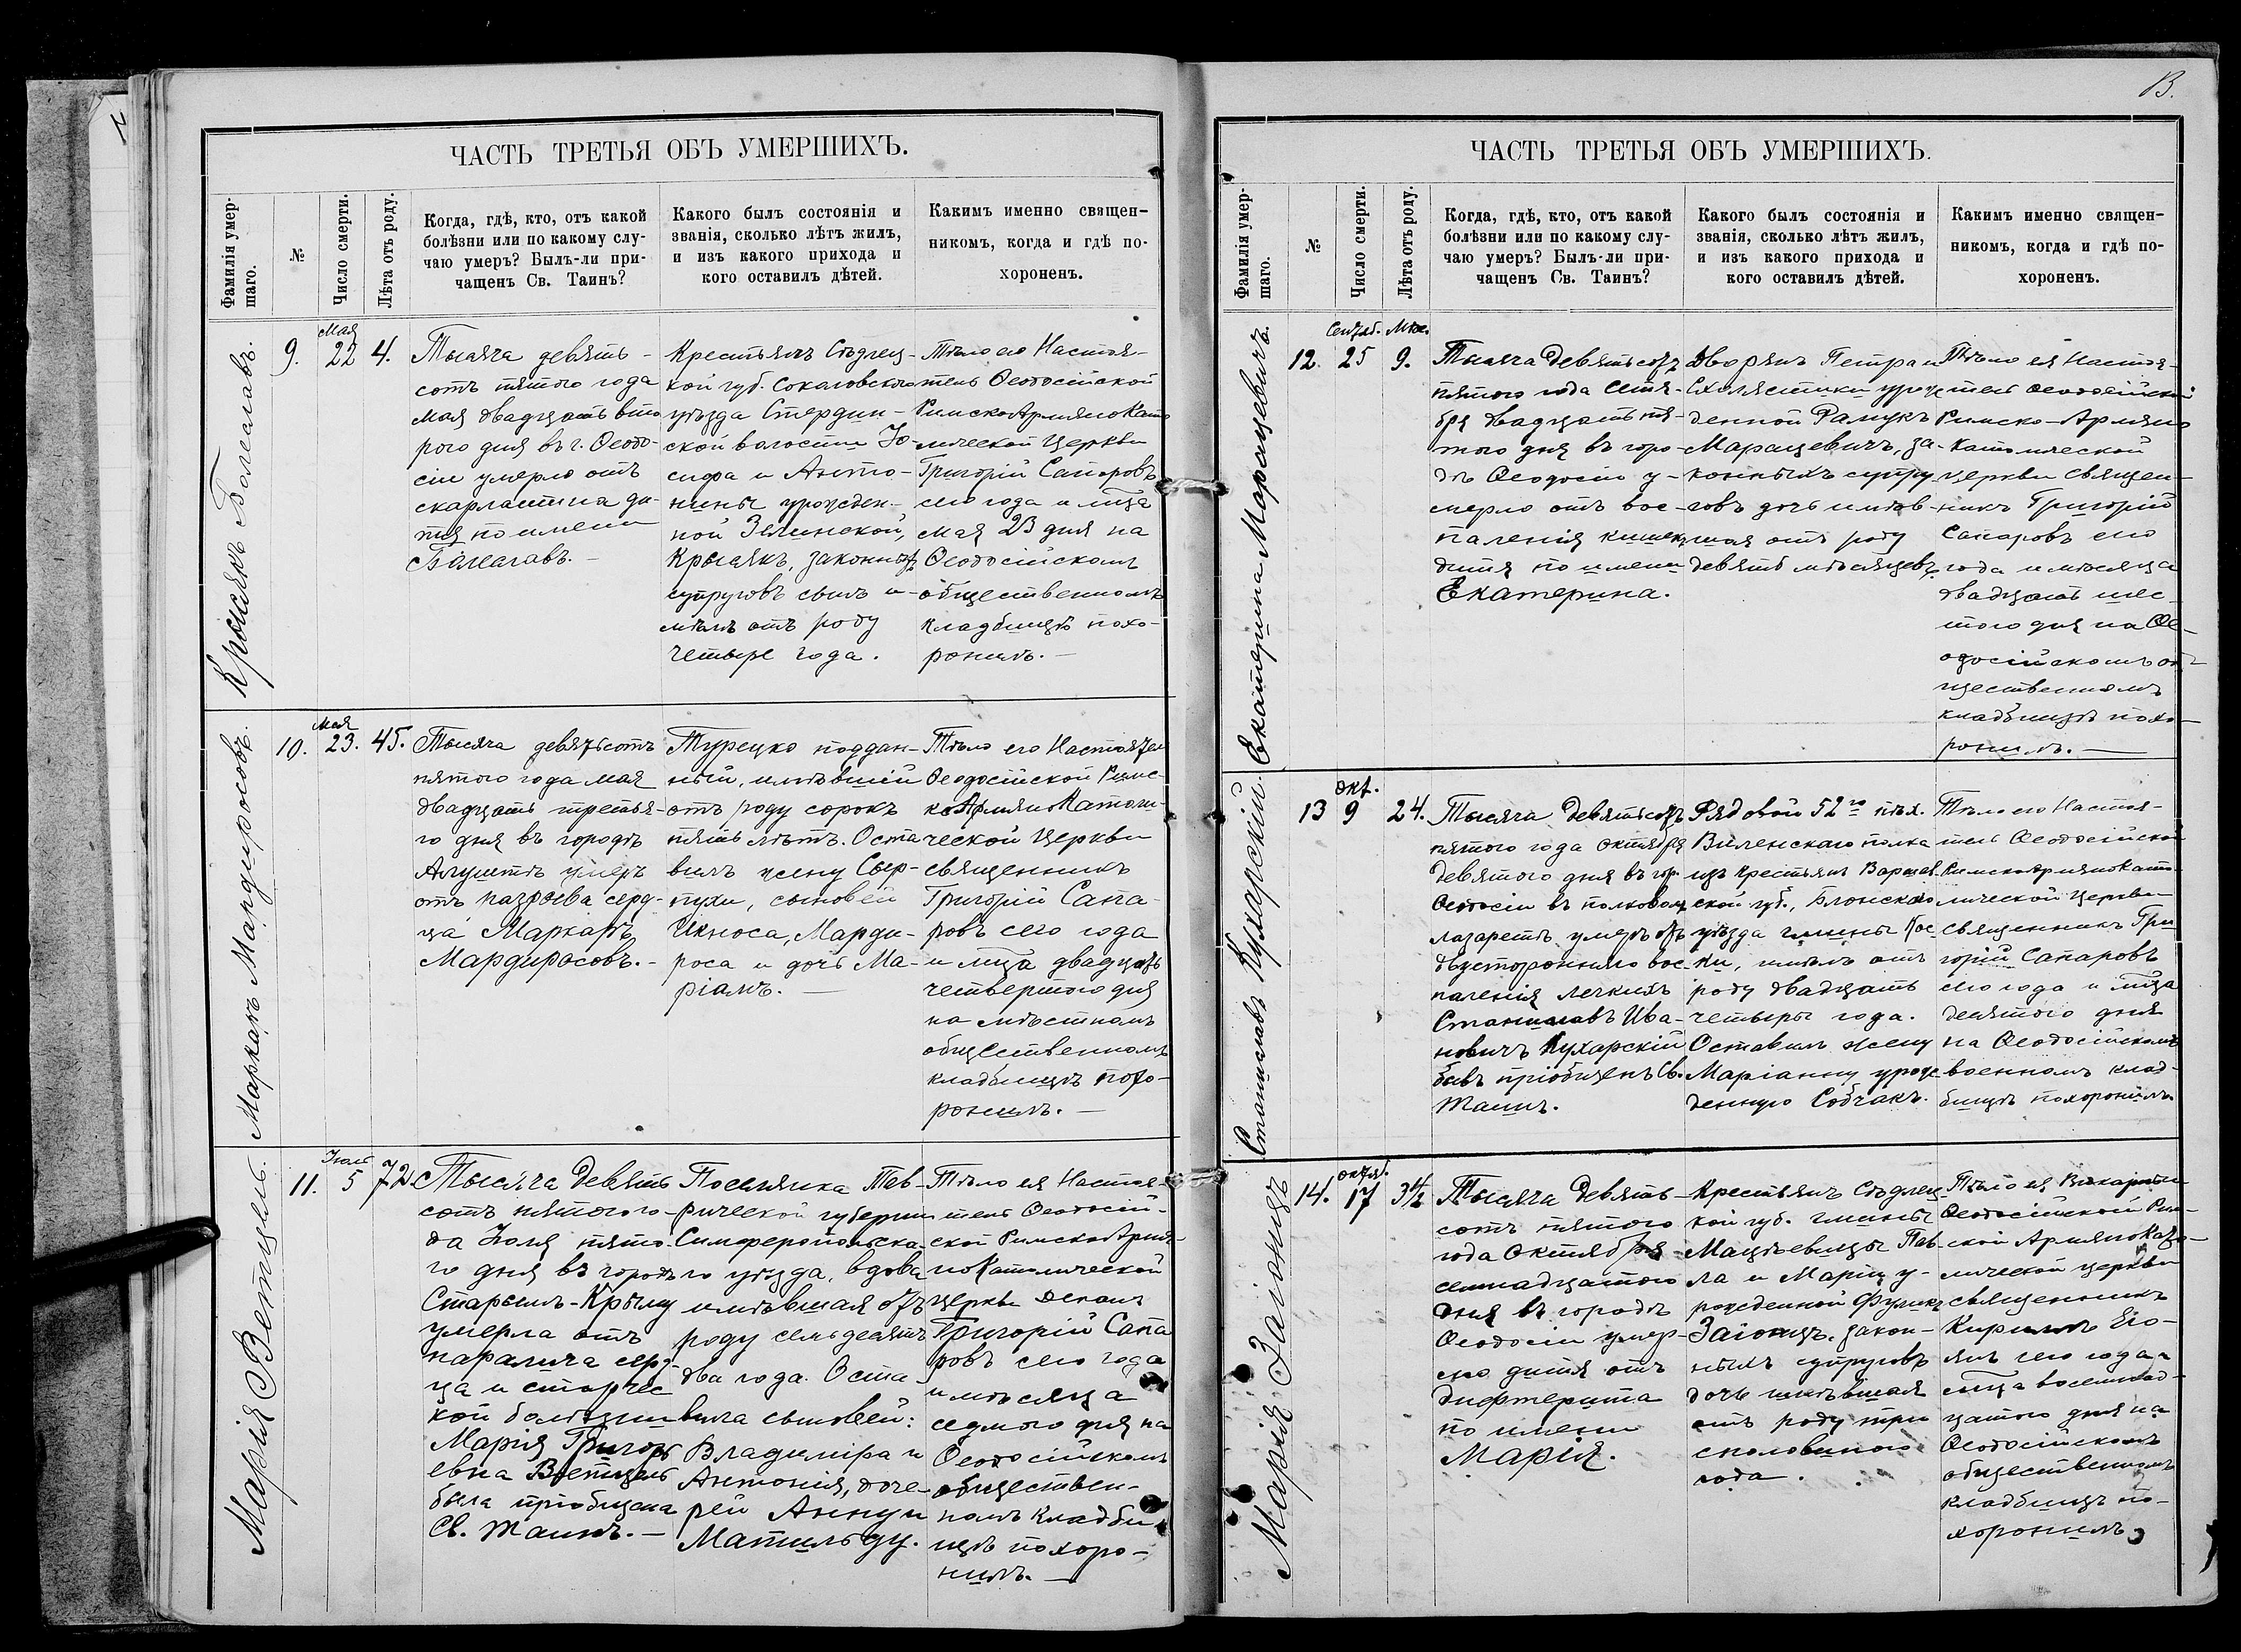 В.
ЧАСТЬ ТРЕТЬЯ ОБЪ УМЕРШИХЪ.
Фамилія умер-
шаго.
№
Число смерти.
Лѣта отъ роду.
Когда, гдѣ, кто, отъ какой
болѣзни или по какому слу-
чаю умеръ? Былъ-ли при-
чащенъ Св. Таинъ?
Какого былъ состоянія и
званія, сколько лѣтъ жилъ,
и изъ какого прихода и
кого оставилъ дѣтей.
Какимъ именно священ-
никомъ, когда и гдѣ по-
хороненъ.
Крысякъ Болеславъ.
9.
Мая
22
4.
Тысяча девять-
сотъ пятого года
Мая двадцать вто
рого дня въ г. Ѳеодо-
сіи умерло отъ
скарлатина ди-
тя по имени
Болеславъ.-
Крестьянъ Сѣдлец-
кой губ. Соколовского
уѣзда Стердин-
ской волости Іо-
сифа и Анто-
нины урожден-
ной Зелинской,
Крысякъ, законныхъ
супруговъ сынъ и-
мѣлъ отъ роду
четыре года.
Тѣло его Настоя-
тель Ѳеодосійской
Римско Армяно Като
лической Церкви
Григорій Сапаровъ
сего года и м-ца
Мая 23 дня на
Ѳеодосійскомъ
общественномъ
кладбищѣ похо-
ронилъ.-
Маркаръ Мардиросовъ.
10.
Мая
23.
45.
Тысяча девятьсотъ
пятого года мая
двадцать третья-
го дня въ городѣ
Алуштѣ умеръ
отъ разрыва серд-
ца Маркаръ
Мардиросовъ.-
Турецко поддан-
ный, имѣвшій
отъ роду сорокъ
пять лѣтъ. Оста
вилъ жену Сыр-
пухи, сыновей
Икноса, Марди-
роса и дочь Ма-
ріамъ.-
Тѣло его Настоятель
Ѳеодосійской Римс-
ко Армяно Католи-
ческой Церкви
священникъ
Григорій Сапа-
ровъ сего года
и м-ца двадцать
четвертого дня
на мѣстномъ
общественномъ
кладбищѣ похо-
ронилъ.-
Марія Ветцель.
11.
Іюля
5
72.
Тысяча девять
сотъ пятого го-
да Іюля пято-
го дня въ городѣ
Старомъ-Крыму
умерла отъ
паралича серд-
ца и старчес
кой болѣзни
Марія Григорь
евна Ветцель
была пріобщена
Св. Таинъ.-
Поселянка Тав-
рической губерніи
Симферопольска-
го уѣзда, вдова
имѣвшая отъ
роду семьдесятъ
два года. Оста-
вила сыновей:
Владиміра и
Антонія, доче-
рей Анну и
Матильду.
Тѣло ея Настоя-
тель Ѳеодосій-
ской Римско Армя-
но Католической
церкви деканъ
Григорій Сапа
ровъ сего года
и мѣсяца
седмого дня на
Ѳеодосійскомъ
обществен-
номъ кладби
щѣ похоро-
нилъ.-
ЧАСТЬ ТРЕТЬЯ ОБЪ УМЕРШИХЪ.
Фамилія умер-
шаго.
№
Число смерти.
Лѣта отъ роду.
Когда, гдѣ, кто, отъ какой
болѣзни или по какому слу-
чаю умеръ? Былъ-ли при-
чащенъ Св. Таинъ?
Какого былъ состоянія и
званія, сколько лѣтъ жилъ,
и изъ какого прихода и
кого оставилъ дѣтей.
Какимъ именно священ-
никомъ, когда и гдѣ по-
хороненъ.
Екатерина Марацевичъ.
12.
Сентяб.
25
9.
Тысяча девятьсотъ
пятого года Сентя-
бря двадцать пя-
того дня въ горо-
дѣ Ѳеодосіи у-
мерло отъ вос-
паленія кишекъ
дитя по имени
Екатерина.
Дворянъ Петра и
Схолястики урож
денной Рамукъ
Марацевичъ, за-
конныхъ супру
говъ дочь имѣв-
шая отъ роду
девять мѣсяцевъ.
Тѣло ея Настоя-
тель Ѳеодосійской
Римско-Армяно
Католической
церкви священ-
никъ Григорій
Сапаровъ сего
года и мѣсяца
двадцать шес-
того дня на Ѳе-
одосійскомъ об-
щественномъ
кладбищѣ похо-
ронилъ.-
Станиславъ Кухарскій.
13
Окт.
9
24.
Тысяча девятьсотъ
пятого года Октября
девятого дня въ гор.
Ѳеодосіи въ полковомъ
лазаретѣ умеръ отъ
двусторонняго вос-
паленія легкихъ
Станиславъ Ива-
новичъ Кухарскій
бывъ пріобщенъ Св.
Таинъ.
Рядовой 52го пѣх.
Виленскаго полка
изъ крестьянъ Варшав
ской губ., Блонскаго
уѣзда гмины Кос-
ки, имѣлъ отъ
роду двадцать
четыры года.
Оставилъ жену
Маріанну урож
денную Собчакъ.
Тѣло его Настоя-
тель Ѳеодосійской
Римско Армяно Като-
лической Церкви
священникъ Гри
горій Сапаровъ
сего года и м-ца
десятого дня
на Ѳеодосійскомъ
военномъ клад-
бищѣ похоронилъ
Марія Заіонцъ
14.
Октяб.
17
3½
Тысяча девять-
сотъ пятого
года Октября
семнадцатого
дня въ городѣ
Ѳеодосіи умер-
ло дитя отъ
дифтерита
по имени
Марія.
Крестьянъ Сѣдлец
кой губ. гмины
Мацѣевицы Пав-
ла и Маріи у-
рожденной Фулекъ
Заіонцъ, закон-
ныхъ супруговъ
дочь имѣвшая
отъ роду три
споловиною
года.
Тѣло ея Викарный
Ѳеодосійской Рим-
ской Армяно Като-
лической церкви
священникъ
Кириллъ Его-
янъ сего года и
м-ца восемнад-
цатого дня на
Ѳеодосійскомъ
общественномъ
кладбищѣ по-
хоронилъ